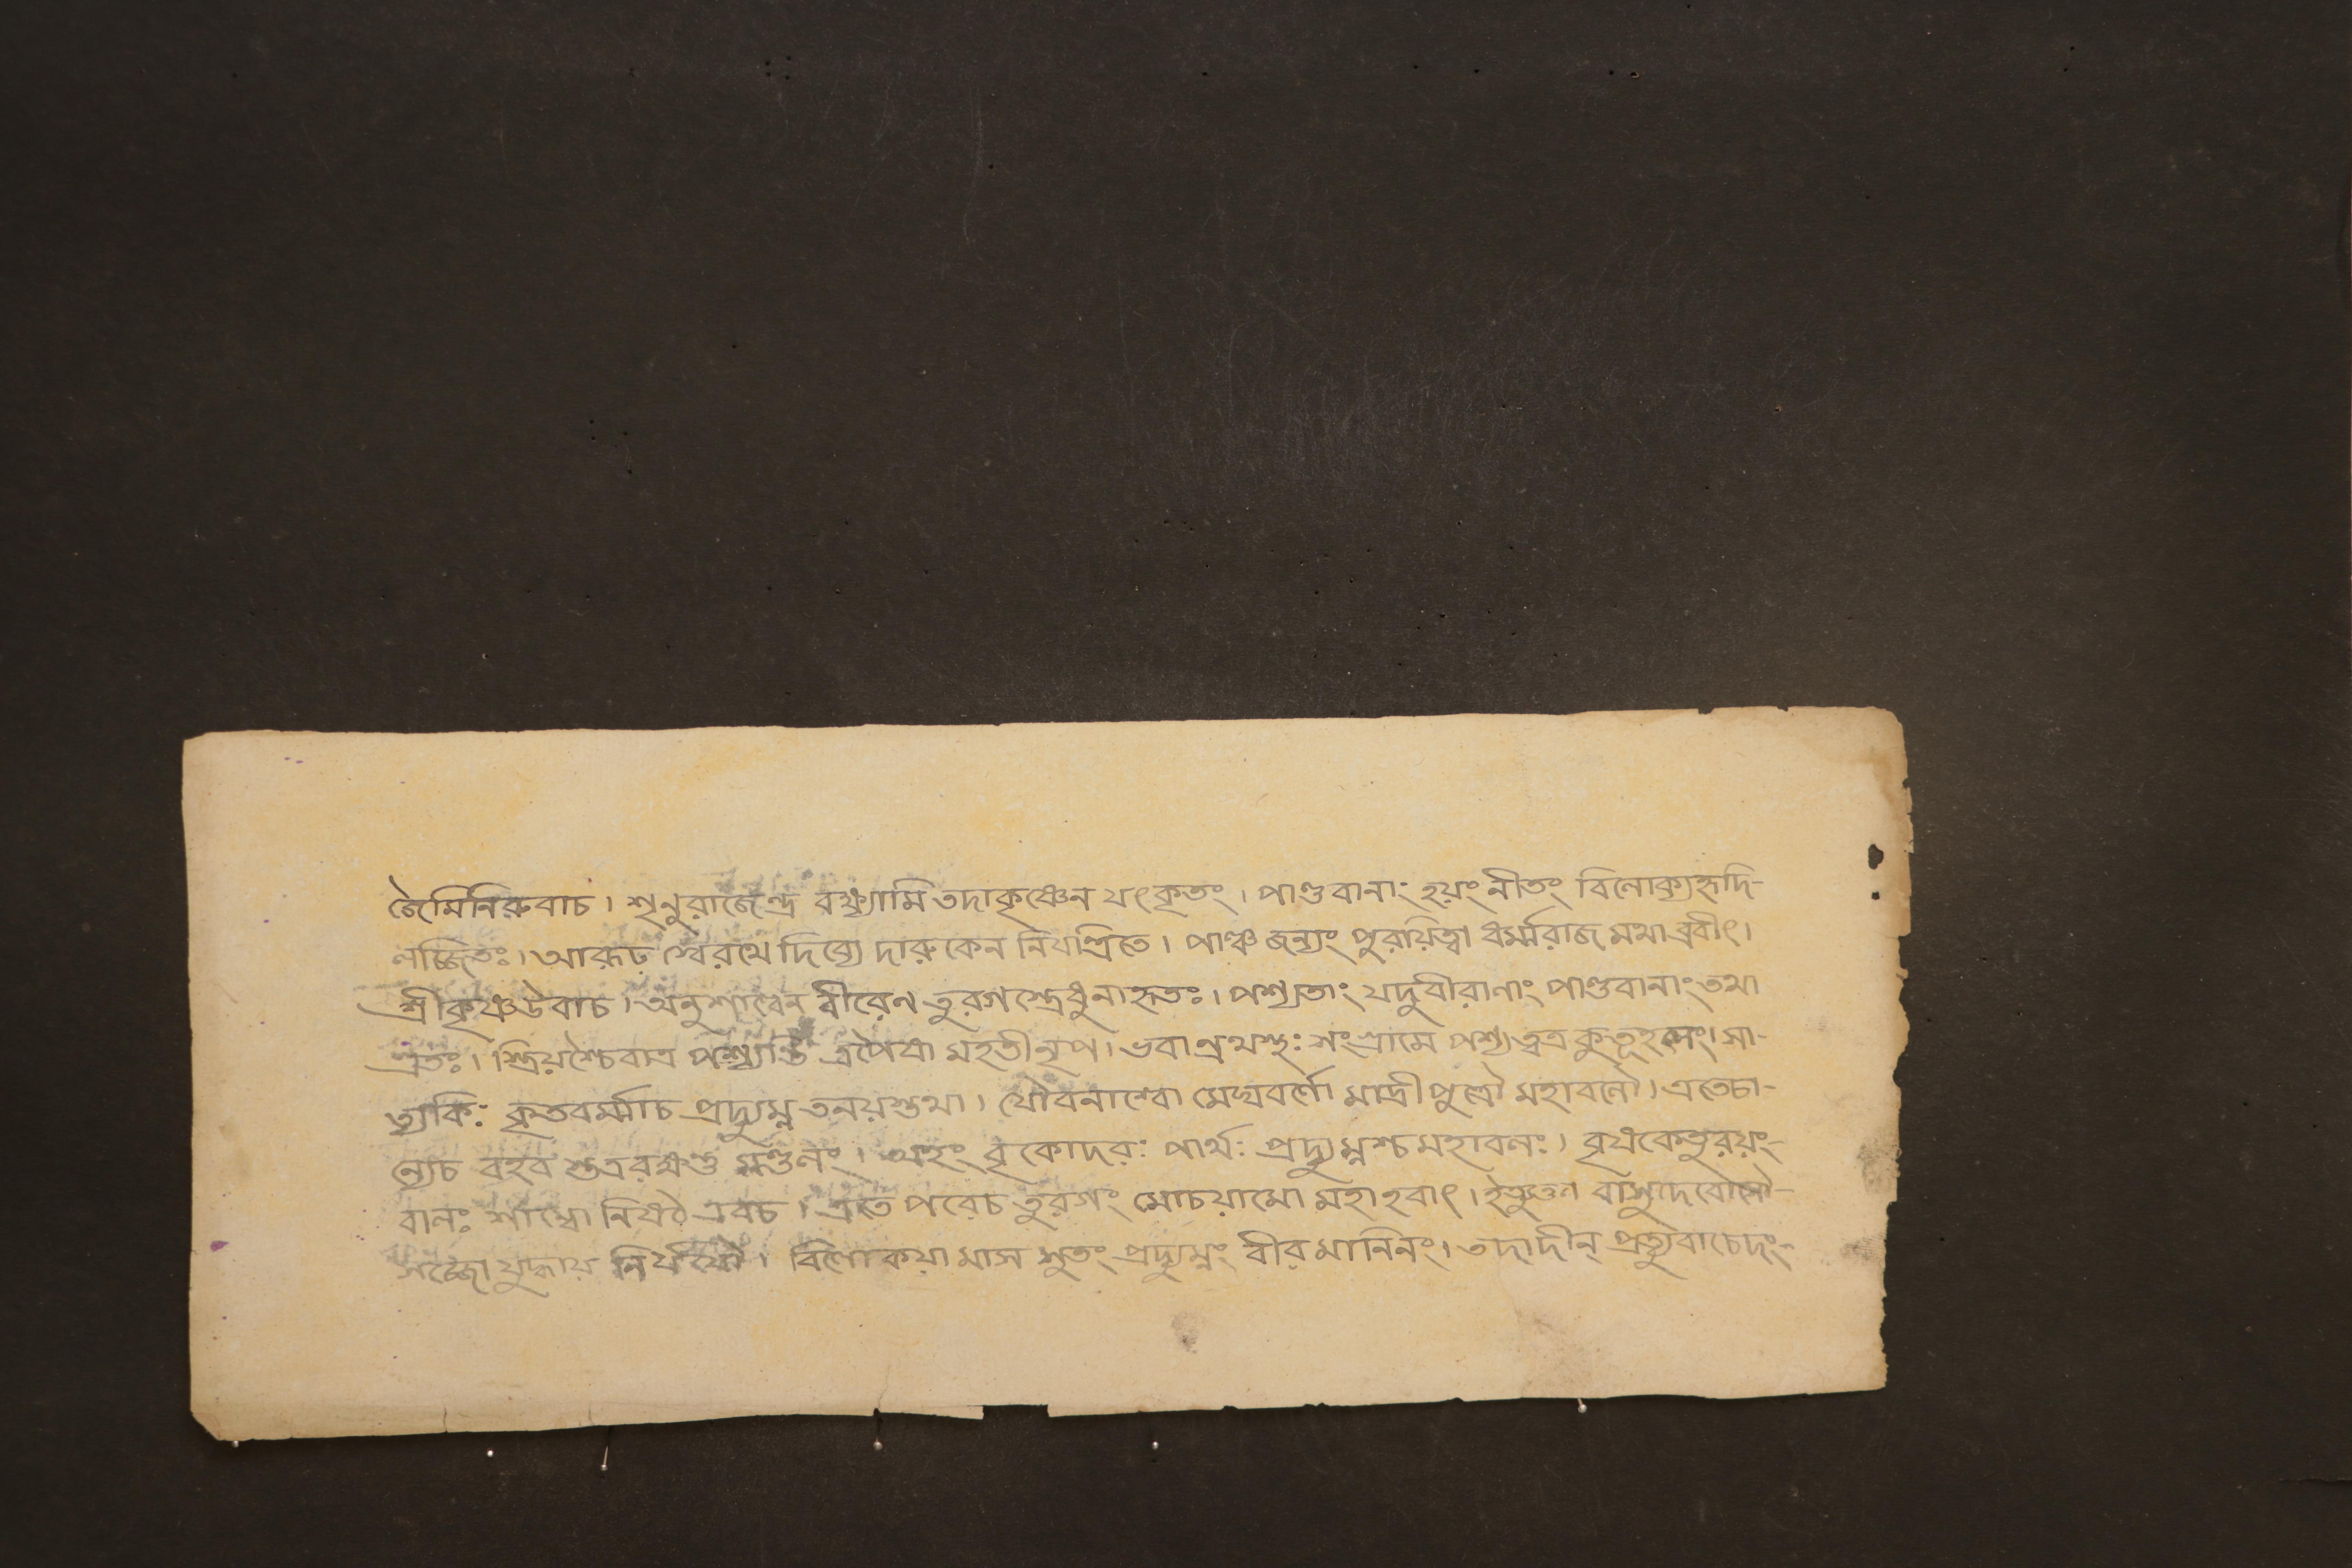 জৈমিনিরুবাচ। শৃনুরাজেন্দ্র বক্ষ্যামি তদাকৃষ্ণেন যৎকৃতং। পাণ্ডবানাং হয়ং নীতং বিলোক্যহৃদি-
লজ্জিতঃ। আরূঢ় শ্বেরথে দিব্যে দারুকেন নিযন্ত্রিতে। পাঞ্চজন্যং পুরয়িত্বা ধর্ম্মরাজ মথাব্রবীৎ।
শ্রীকৃষ্ণউবাচ। অনুশাল্বেন বীরেণ তুরগস্ত্রেধুনাহৃতঃ। পশ্যতাং যদুবীরাণাং পাণ্ডবানাং তথা
গ্রতঃ। স্ত্রিয়শ্চৈবাত্র পশ্যন্তি ত্রপৈষা মহতীনৃপ। ভবান্রথস্থঃ সংগ্রামে পশ্যত্বত্র কুতূহলং। সা-
ত্যকিঃ কৃতবর্ম্মাচ প্রদ্যুম্ন তনয়স্তথা। যৌবনাশ্বো মেঘবর্ণো মাদ্রীপুত্রৌ মহাবলৌ। এতেচা-
ন্যেচ বহব স্তত্ররক্ষন্তু মণ্ডলং। অহং বৃকোদরঃ পার্থঃ প্রদ্যুম্নশ্চ মহাবলঃ। বৃষকেতুরয়ং-
বালঃ শাম্বো নিষঠ এবচ। এতে পরেচ তুরগং মোচয়ামো মহাহবাৎ। ইত্যুক্ত্বা বাসুদেবোসৌ-
সজ্জো যুদ্ধায় নির্যযৌ। বিলোকয়ামাস সুতং প্রদ্যুম্নং বীরমানিনং। তদাদীন্ প্রত্যুবাচেদং-